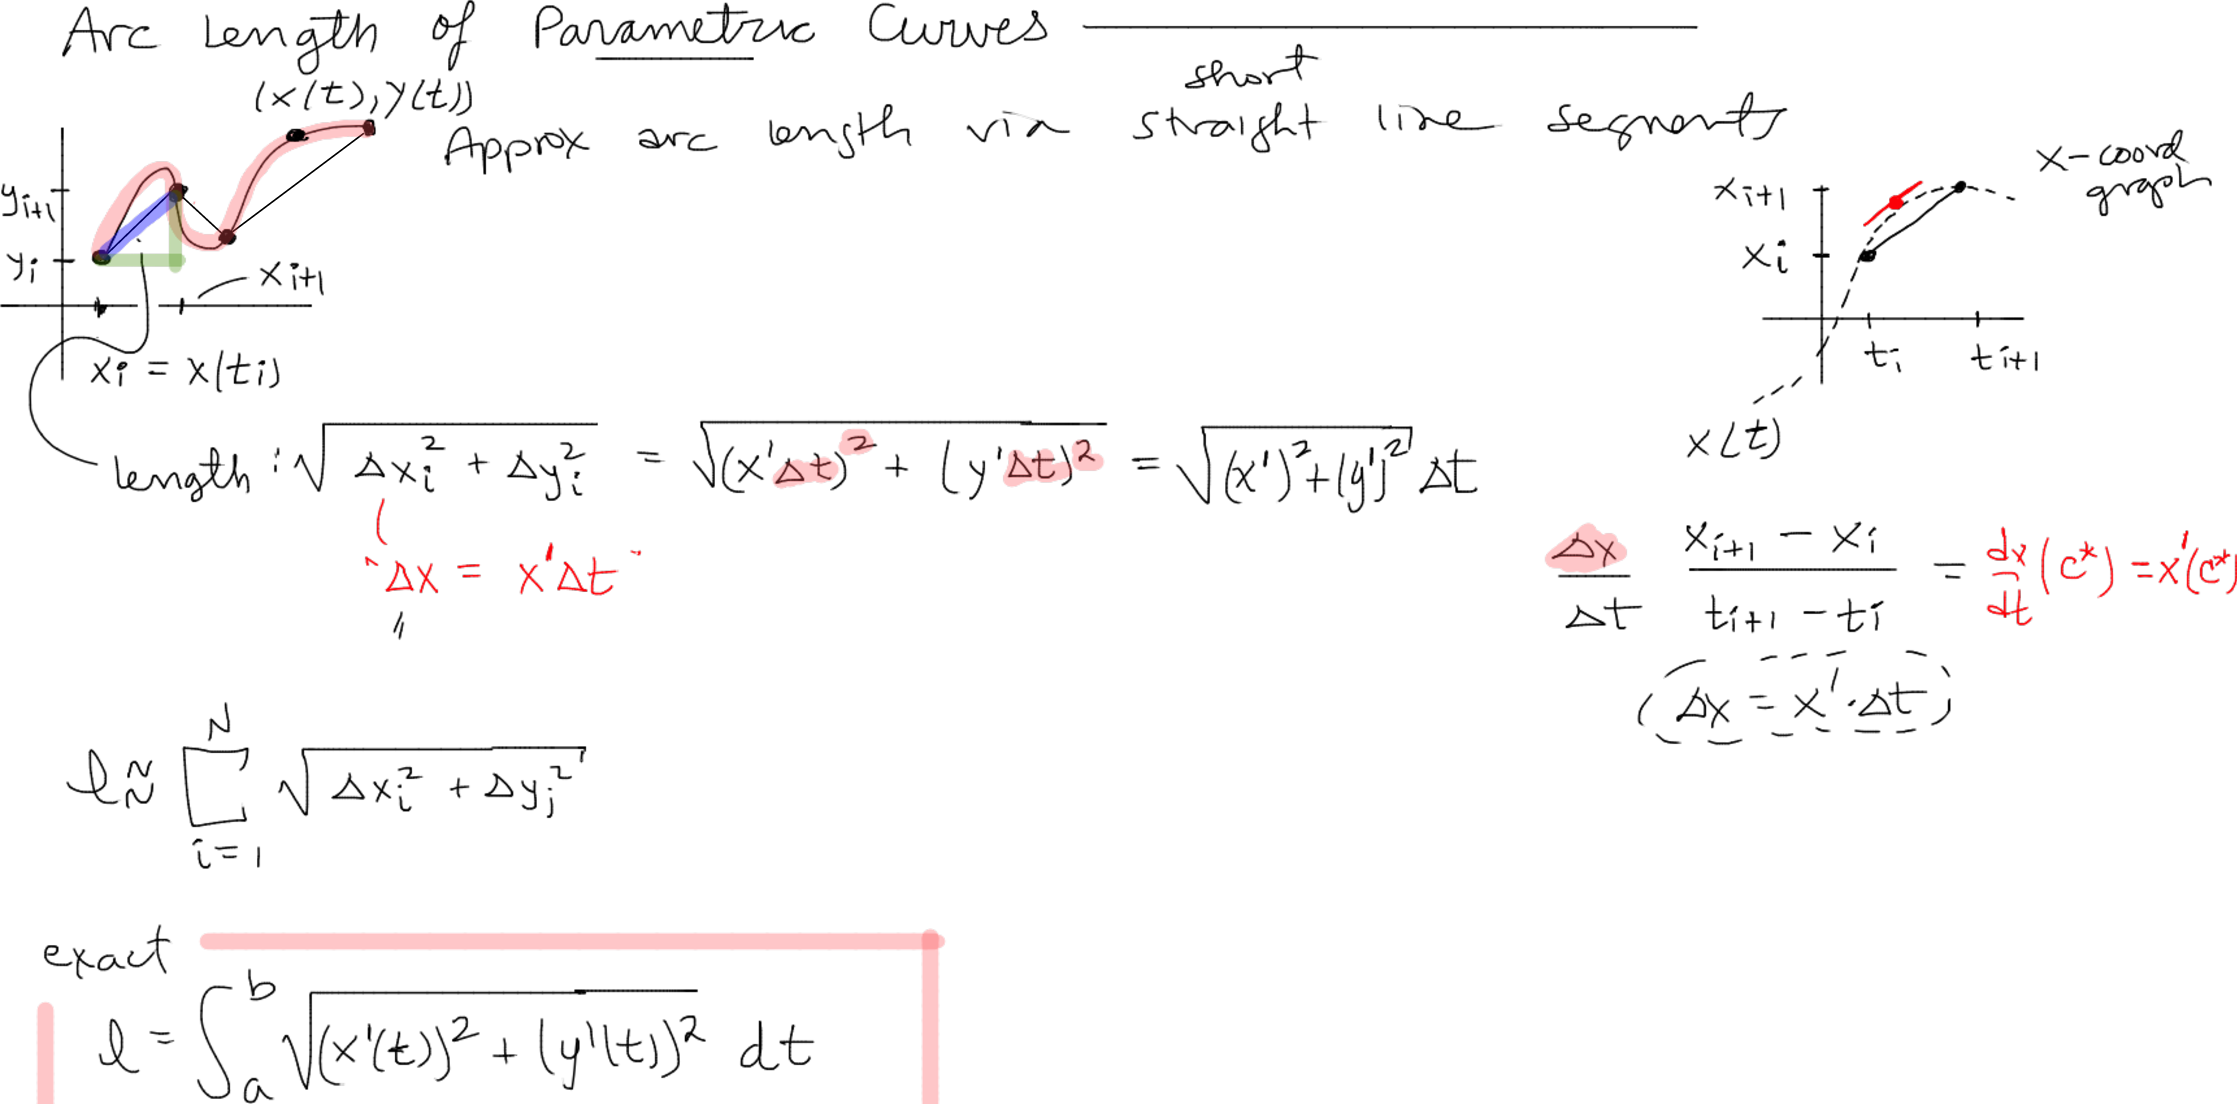 Arc Length of Parametric Curves
(x(t), y(t))
short
Approx arc length via straight line segments
x-coord graph
y_{i+1}
y_i
x_{i+1}
x_i = x(t_i)
x_{i+1}
x_i
t_i
t_{i+1}
x(t)
length : √(Δx_i^2 + Δy_i^2) = √((x'Δt)^2 + (y'Δt)^2) = √((x')^2 + (y')^2) Δt
"Δx = x'Δt"
Δx/Δt (x_{i+1} - x_i)/(t_{i+1} - t_i) = dx/dt (c*) = x'(c*)
(Δx = x'·Δt)
l ≈ Σ_{i=1}^{N} √(Δx_i^2 + Δy_i^2)
exact
l = ∫_a^b √((x'(t))^2 + (y'(t))^2) dt